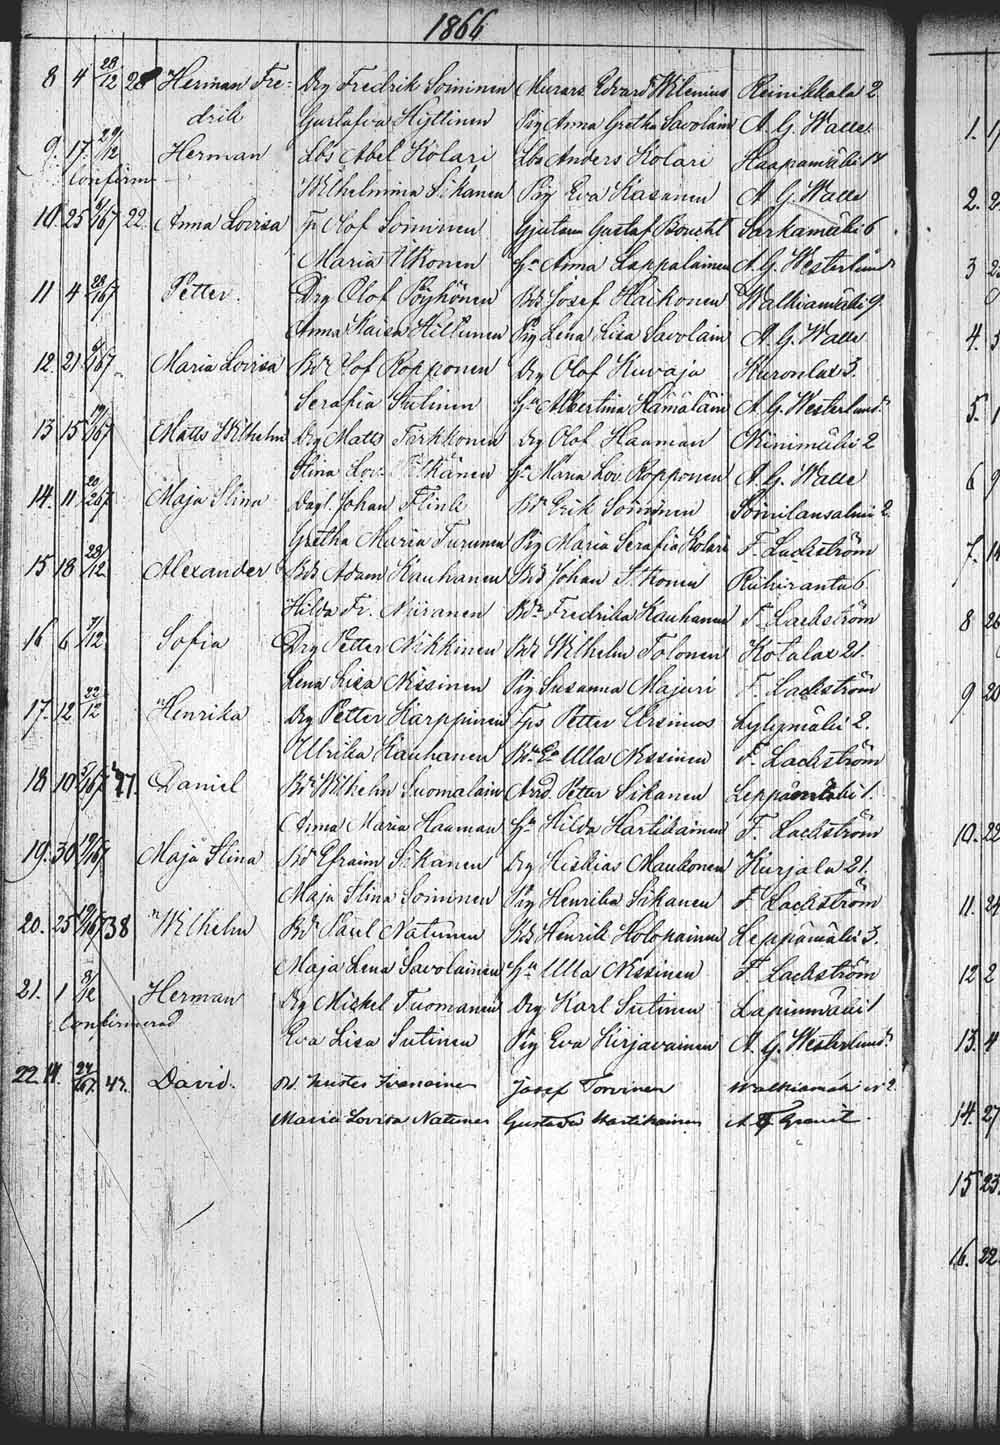 1866
8 4 28/12 28 Herman Fre= Drg Fredrik Soininen Murare Edvard Wilenius Reinikkala 2
drik Gustafva Hyttinen Pig Anna Gretha Savolain A. G. Walle
9. 17. 29/12 Herman Lbs Abel Kolari Lbs Anders Kolari Haapamäki 14
Confirm Wilhelmina Sikanen Pig Eva Kasanen A. G. Walle
10. 25 /67 22. Anna Lovisa Olof Soininen Gjutaren Gustaf Boucht Sarkamäki 6
Maria Itkonen Hu Anna Lappalainen A. G. Westerlund
11 4 28/67 Petter. Drg Olof Pöyhönen Bds Josef Haikonen Walkiamäki 9
Anna Kaisa Hiltunen Pig Lena Lisa Savolain A. G. Walle
12. 21. /67 Maria Lovisa Bd Olof Ropponen Drg Olof Kuvaja Kuronlax 3.
Serafia Sutinen Hu Albertina Hämäläin A. G. Westerlund
13 15 19/67 Matts Wilhelm Drg Matts Tarkkonen Drg Olof Haaman Niinimäki 2
Stina Lov. Hu Maria Lov Ropponen A. G. Walle
14. 11. 20/267 Maja Stina Dagl. Johan Flink Bd Erik Soininen Soinilansalmi 2.
Gretha Maria Turunen Pig Maria Serafia Kolari F. Lackström
15 18 28/12 Alexander Bds Adam Kauhanen Bds Johan Itkonen Riihiranta 6
Hilda Fr. Niiranen Bdr Fredrika Kauhanen F. Lackström
16 6 9/12 Sofia Drg Petter Nikkinen Bds Wilhelm Tolonen Kotalax 21.
Lena Lisa Nissinen Pig Susanna Majuri F. Lackström
17. 12 22/12 Henrika Drg Petter Karppinen Tps Petter Ursinus Lylynmäki 2.
Ulrika Kauhanen Ulla Nissinen F. Lackström
18 10 5/67 27. Daniel Bd Wilhelm Suomalain Arrd. Petter Sikanen Leppämäki 1.
Anna Maria Haaman Hu Hilda Hartikainen F. Lackström
19. 30 19/67 Maja Stina Bd Efraim Sikanen Drg Hiskias Maukonen Kurjala 21.
Maja Stina Soininen Pig Henrika Sikanen F Lackström
20. 25 19/67 38 Wilhelm Bd Paul Natunen Bds Henrik Holopainen Leppämäki 3.
Maja Lena Savolainen Hu Ulla Nissinen F. Lackström
21. 1 8/12 Herman Drg Mickel Tuomainen Drg Karl Sutinen Lapinmäki 1
Confirmerad Eva Lisa Sutinen Pig Eva Kirjavainen A. G. Westerlund
22 14. 24/67 43. David. Bd. Kustes Ivanainen Josef Torvinen Walkiamäki N 2.
Maria Lovisa Natunen Gustava Hartikainen A. F Granit.
1. 1
2. 2
3 2
4. 3
5. 1
6 9
7. 14
8 26
9 20
10. 22
11. 24
12 2
13. 4
14. 27
15 23.
16. 22